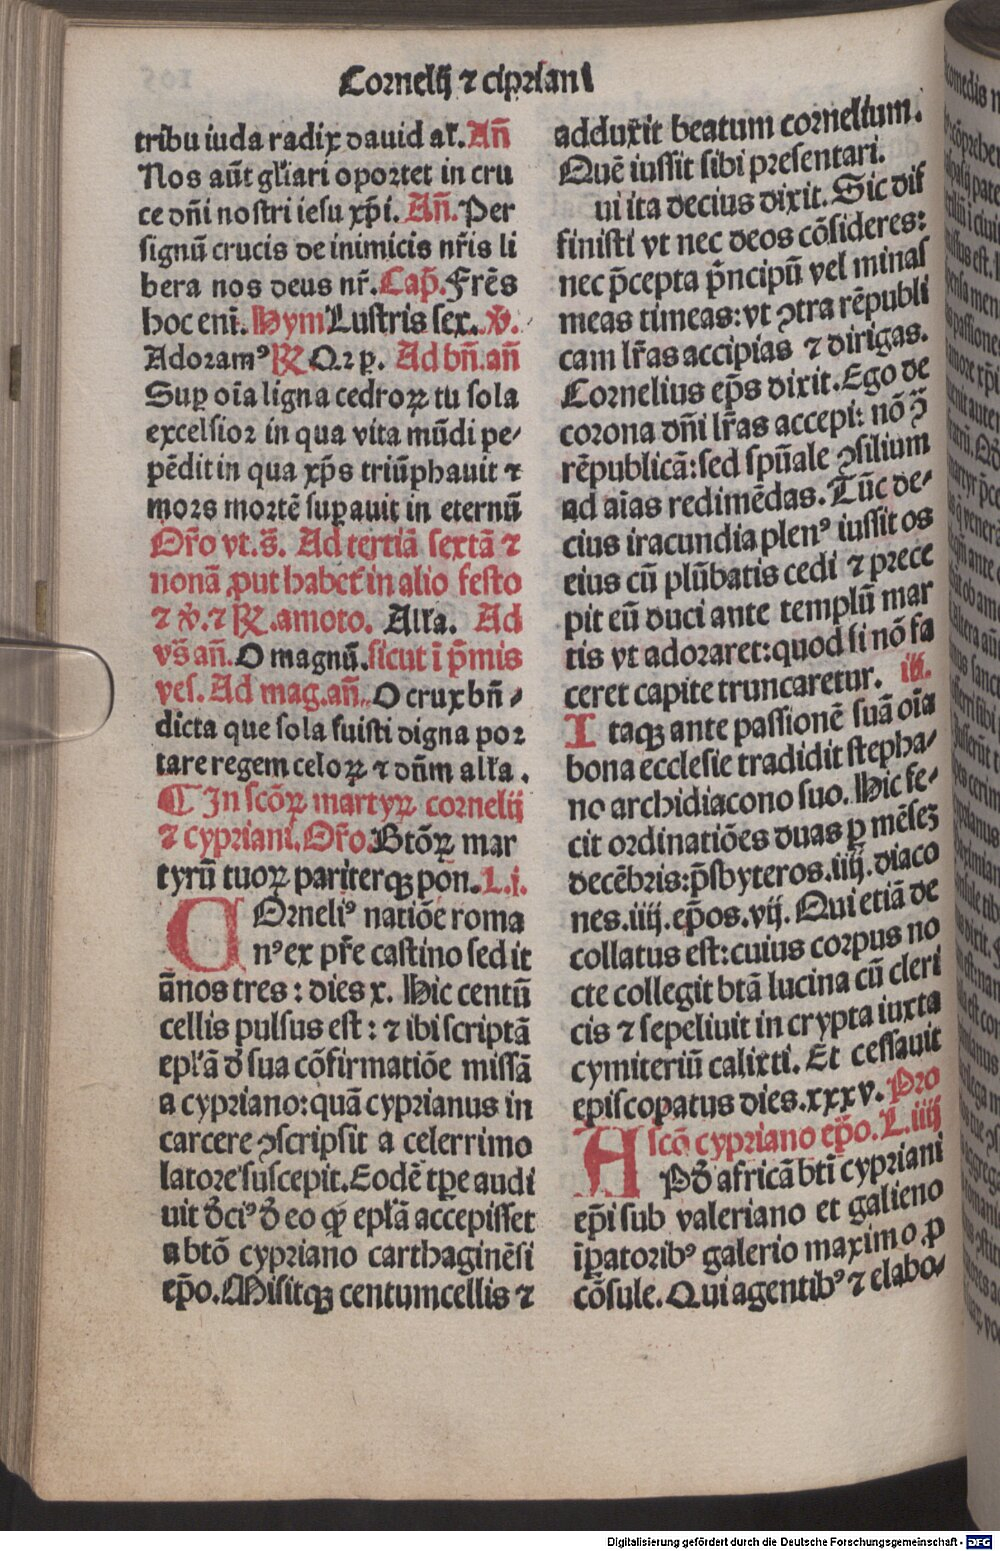 Cornelij ⁊ cipriani
tribu iuda radix dauid al̄. An̄
Nos aūt gl̄iari oportet in cru
ce dn̄i nostri iesu xp̄i. An̄. Per
signū crucis de inimicis nr̄is li
bera nos deus nr̄. Cap̄. Frēs
hoc enī. Hym Lustris sex. v̄.
Adoramꝰ ℟ O2p. Ad bn̄. an̄
Suꝑ oīa ligna cedroꝝ tu sola
excelsior in qua vita mūdi pe⸗
pēdit in qua xp̄s triūphauit ⁊
mors mortē suꝑauit in eternū
Or̄o vt. s̄. Ad tertiā sextā ⁊
nonā ꝓut habet᷑ in alio festo
⁊ v̄. ⁊ ℟. amoto. All̄a. Ad
vs̄ an̄. O magnū. sicut ī p̄mis
ves. Ad mag. an̄. O crux bn̄⸗
dicta que sola fuisti digna por
tare regem celoꝝ ⁊ dn̄m all̄a.
¶ In scōꝝ martyꝝ cornelij
⁊ cypriani. Or̄o. Btōꝝ mar
tyrū tuoꝝ pariterqꝫ pon. L. j.
COrneliꝰ natiōe roma
nꝰ ex pr̄e castino sedit
ānos tres: dies x. Hic centū
cellis pulsus est: ⁊ ibi scriptā
epl̄ā d̄ sua cōfirmatiōe missā
a cypriano: quā cyprianus in
carcere ↄscripsit a celerrimo
latore suscepit. Eodē tꝑe audi
uit d̄ciꝰ d̄ eo qp̄ epl̄ā accepisset
a btō cypriano carthaginēsi
ep̄o. Misitqꝫ centumcellis ⁊
adduxit beatum cornelium.
Quē iussit sibi presentari.
ui ita decius dixit. Sic dif
finisti vt nec deos cōsideres:
nec p̄cepta p̄ncipū vel minas
meas timeas: vt ↄtra rēpubli
cam lr̄as accipias ⁊ dirigas.
Cornelius ep̄s dixit. Ego de
corona dn̄i lr̄as accepi: nō ↄ̄
rēpublicā: sed spūale ↄsilium
ad aīas redimēdas. Tūc de⸗
cius iracundia plenꝰ iussit os
eius cū plūbatis cedi ⁊ prece
pit eū duci ante templū mar
tis vt adoraret: quod si nō fa
ceret capite truncaretur. iij.
Itaqꝫ ante passionē suā oīa
bona ecclesie tradidit stepha⸗
no archidiacono suo. Hic fe⸗
cit ordinatiōes duas ꝑ mēseꝫ
decēbris: p̄sbyteros. iiij. diaco
nes. iiij. ep̄os. vij. Qui etiā de
collatus est: cuius corpus no
cte collegit btā lucina cū cleri
cis ⁊ sepeliuit in crypta iuxta
cymiteriū calixti. Et cessauit
episcopatus dies. xxxv. Pro
scō cypriano ep̄o. L. iiij
APd̄ africā bti cypriani
ep̄i sub valeriano et galieno
īpatoribꝰ galerio maximo ꝓ
cōsule. Qui agentibꝰ ⁊ elabo⸗
Digitalisierung gefördert durch die Deutsche Forschungsgemeinschaft - DFG